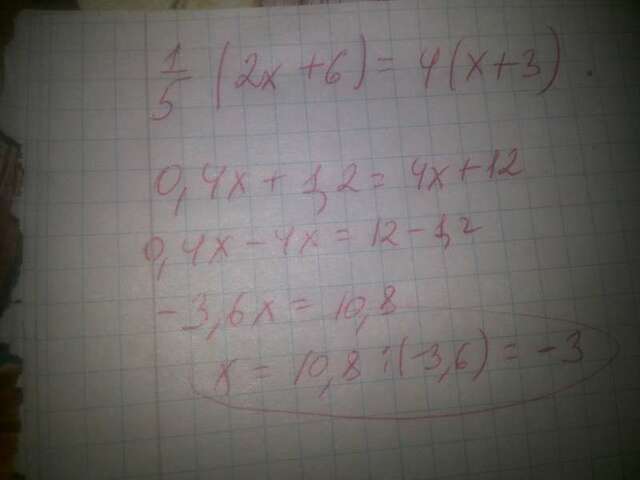 1/5 (2x+6) = 4(x+3).
0,4x + 1,2 = 4x+12
0,4x - 4x = 12 - 1,2
-3,6x = 10,8
x = 10,8 : (-3,6) = -3